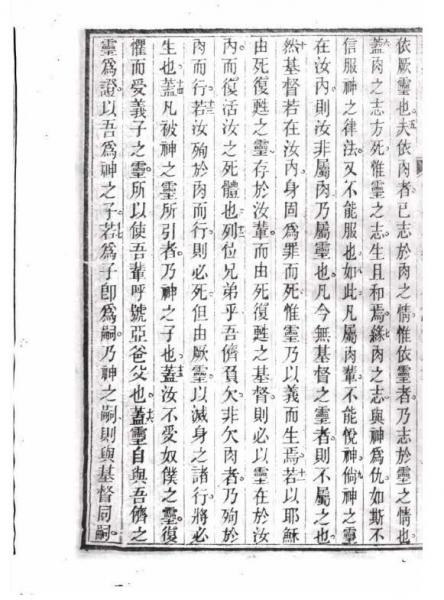 依厥靈也夫依肉者已志於肉之情惟依靈者乃志於靈之情也
蓋肉之志方死惟靈之志生且和焉緣肉之志與神爲仇如斯不
信服神之律法又不能服也如此凡屬肉輩不能悅神倘神之靈
在汝內則汝非屬肉乃屬靈也凡今無基督之靈者則不屬之也
然基督若在汝內身固爲罪而死惟靈乃以義而生焉若以耶穌
由死復甦之靈存於汝輩而由死復甦之基督則必以靈在於汝
內而復活汝之死體也列位兄弟乎吾儕負欠非欠肉者乃殉於
肉而行若汝殉於肉而行則必死但由厥靈以滅身之諸行將必
生也蓋凡被神之靈所引者乃神之子也蓋汝不愛奴僕之靈復
懼而愛義子之靈所以使吾輩呼號亞爸父也蓋靈自與吾儕之
靈爲證以吾爲神之子若爲子卽爲嗣乃神之嗣則與基督同嗣